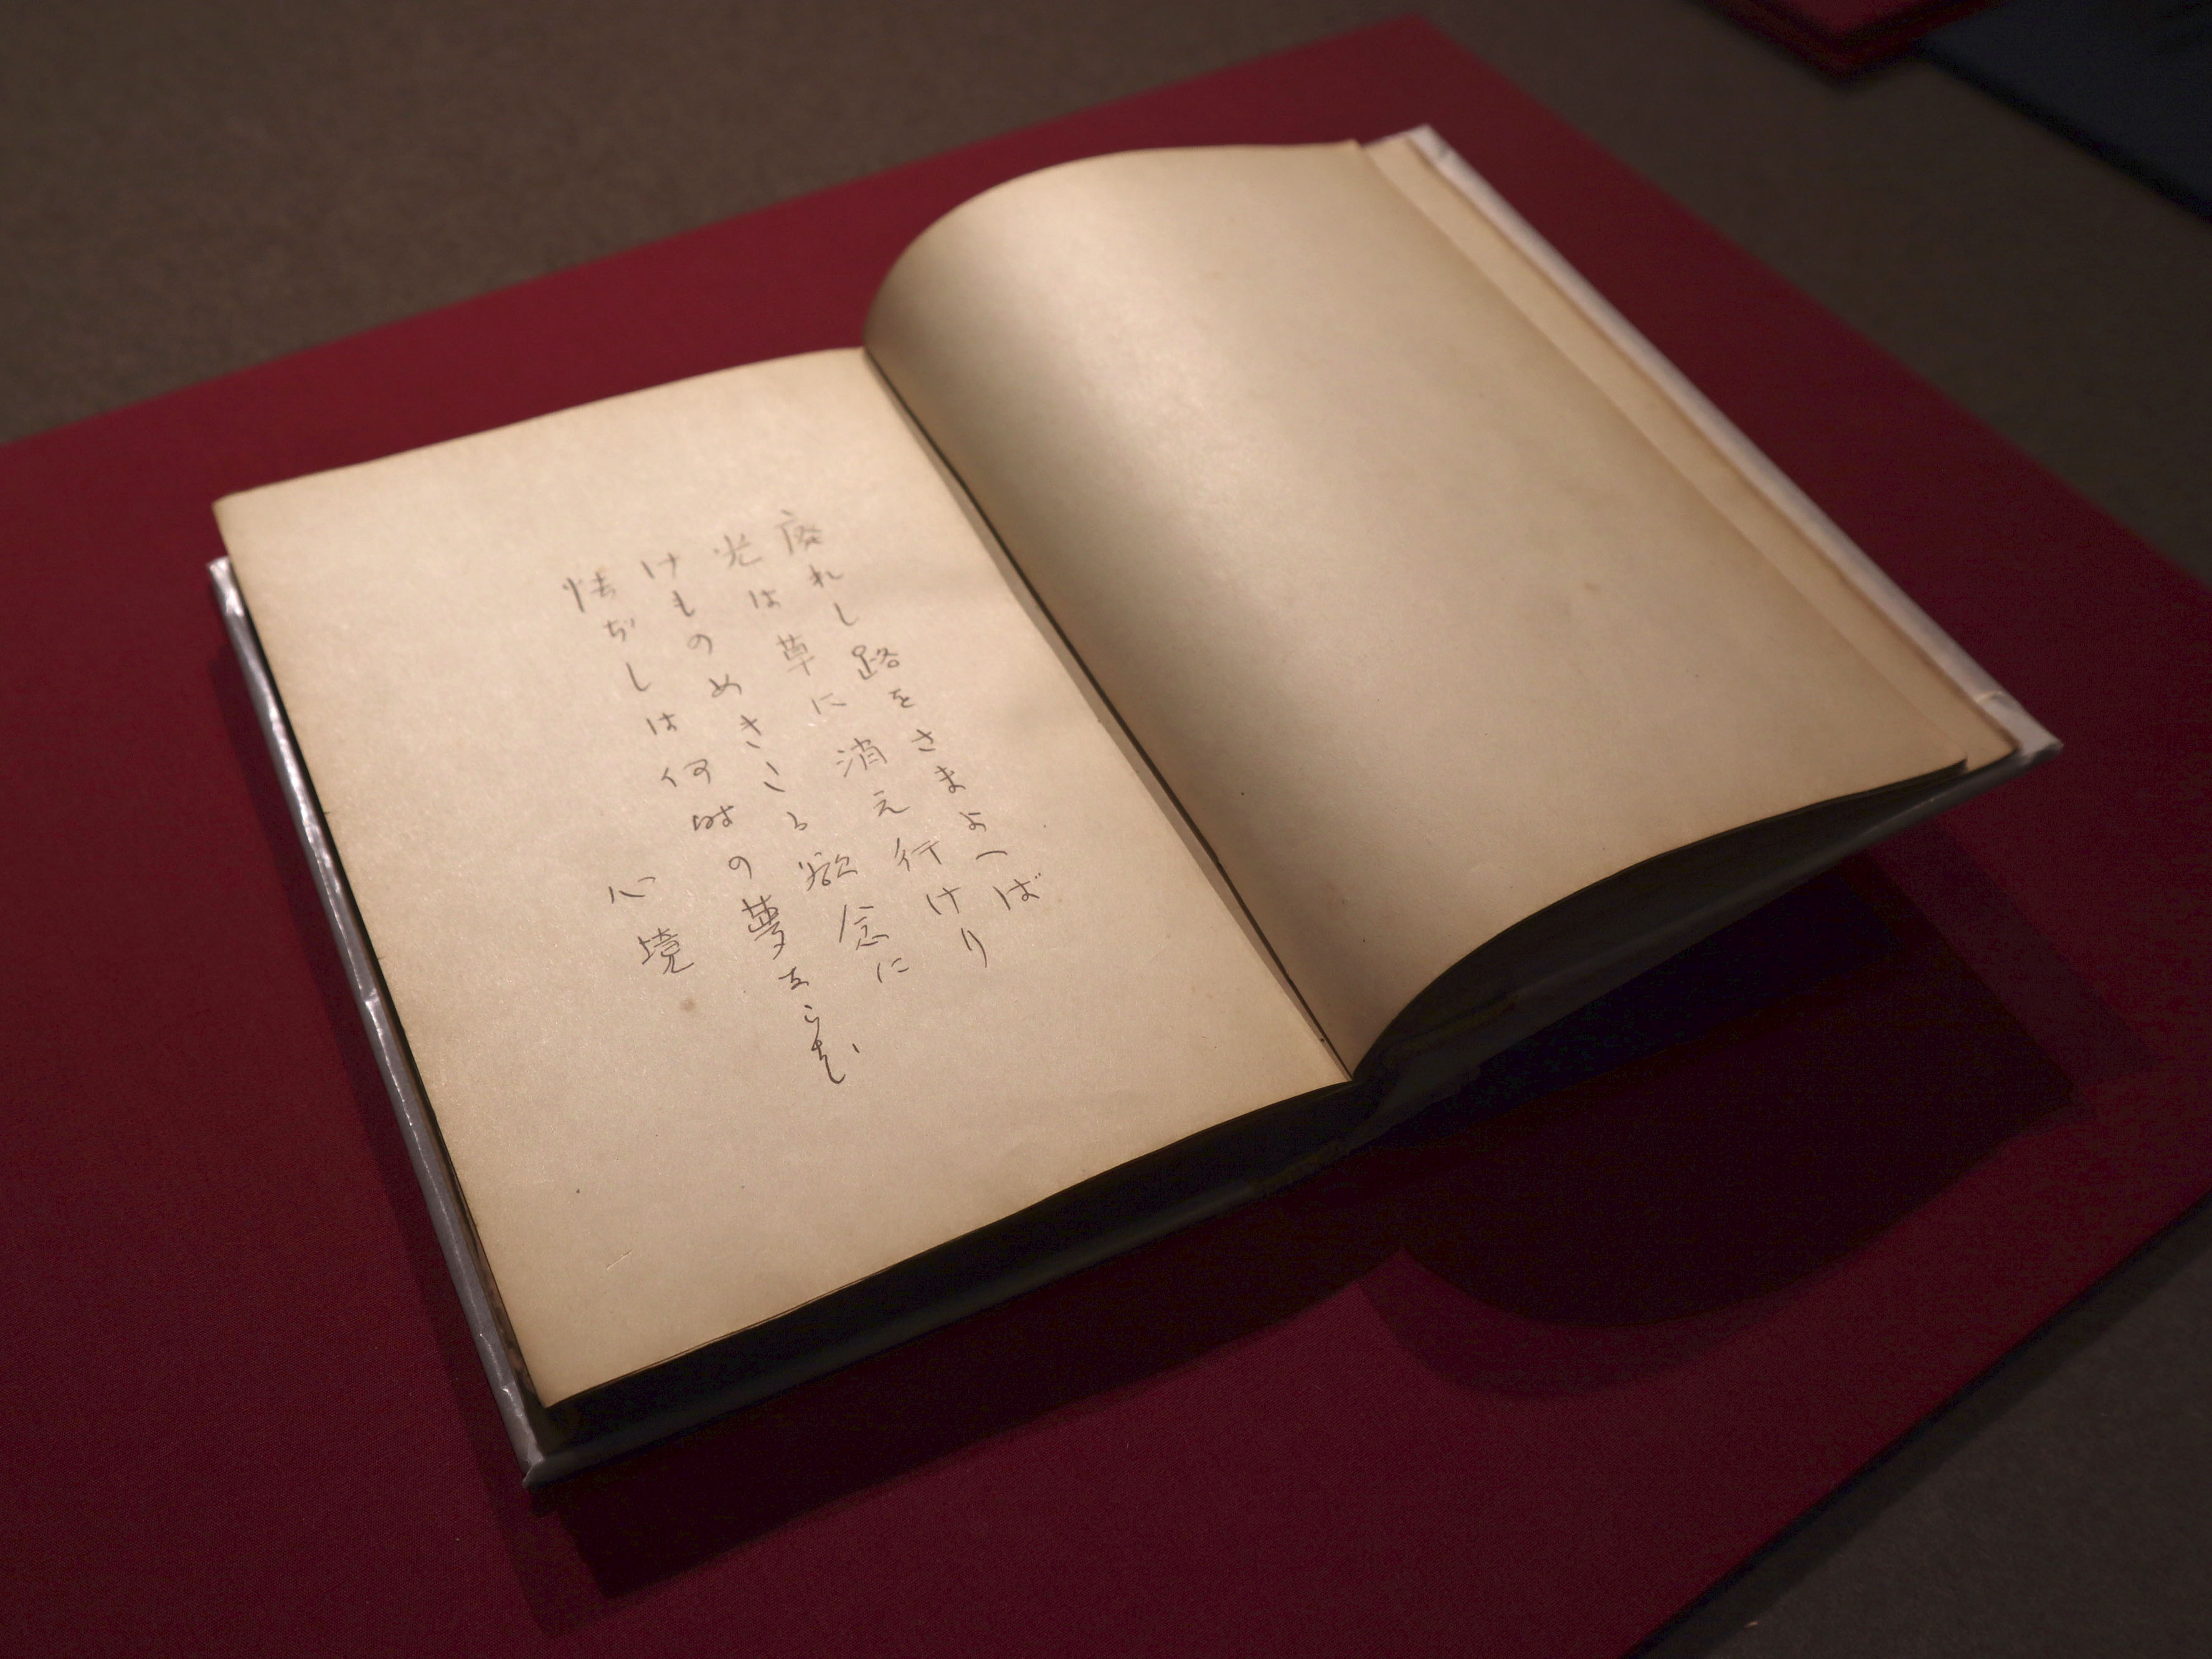 廃れし路をさまよへば
光は草に消え行けり
けものめきたる欲念に
怯ぢしは何時の夢ならむ
心境